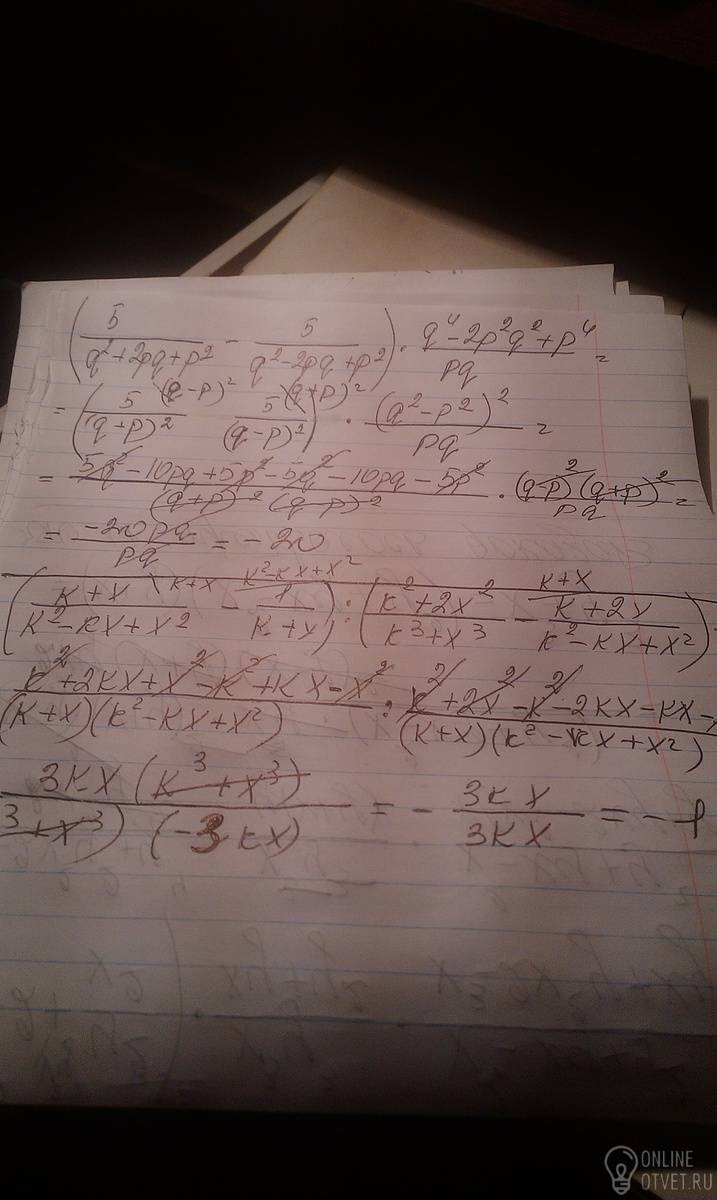 (5/(q²+2pq+p²) - 5/(q²-2pq+p²)) · (q⁴-2p²q²+p⁴)/pq =
= (5 (q-p)²/(q+p)² 5 (q+p)²/(q-p)²) · (q²-p²)²/pq =
= (5q²-10pq+5p²-5q²-10pq-5p²)/((q+p)²(q-p)²) · (q-p)²(q+p)²/pq =
= -20pq/pq = -20
((k+x)/(k²-kx+x²) \ k+x - 1/(k+x) \ k²-kx+x²) : ((k²+2x²)/(k³+x³) - (k+2x)/(k²-kx+x²) \ k+x)
(k²+2kx+x²-k²+kx-x²)/((k+x)(k²-kx+x²)) : (k²+2x²-k²-2kx-kx-)/((k+x)(k²-kx+x²))
3kx(k³+x³)/(³+x³)(-3kx) = - 3kx/3kx = -1
ONLINE
OTVET.RU